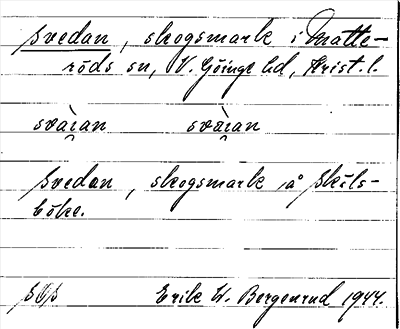 Svedan, skogsmark i Matte-
röds sn, V. Göinge hd, Krist. l.
svàian svàian
Svedan, skogsmark å Skäls-
böke.
Erik W. Bergenrud 1944.